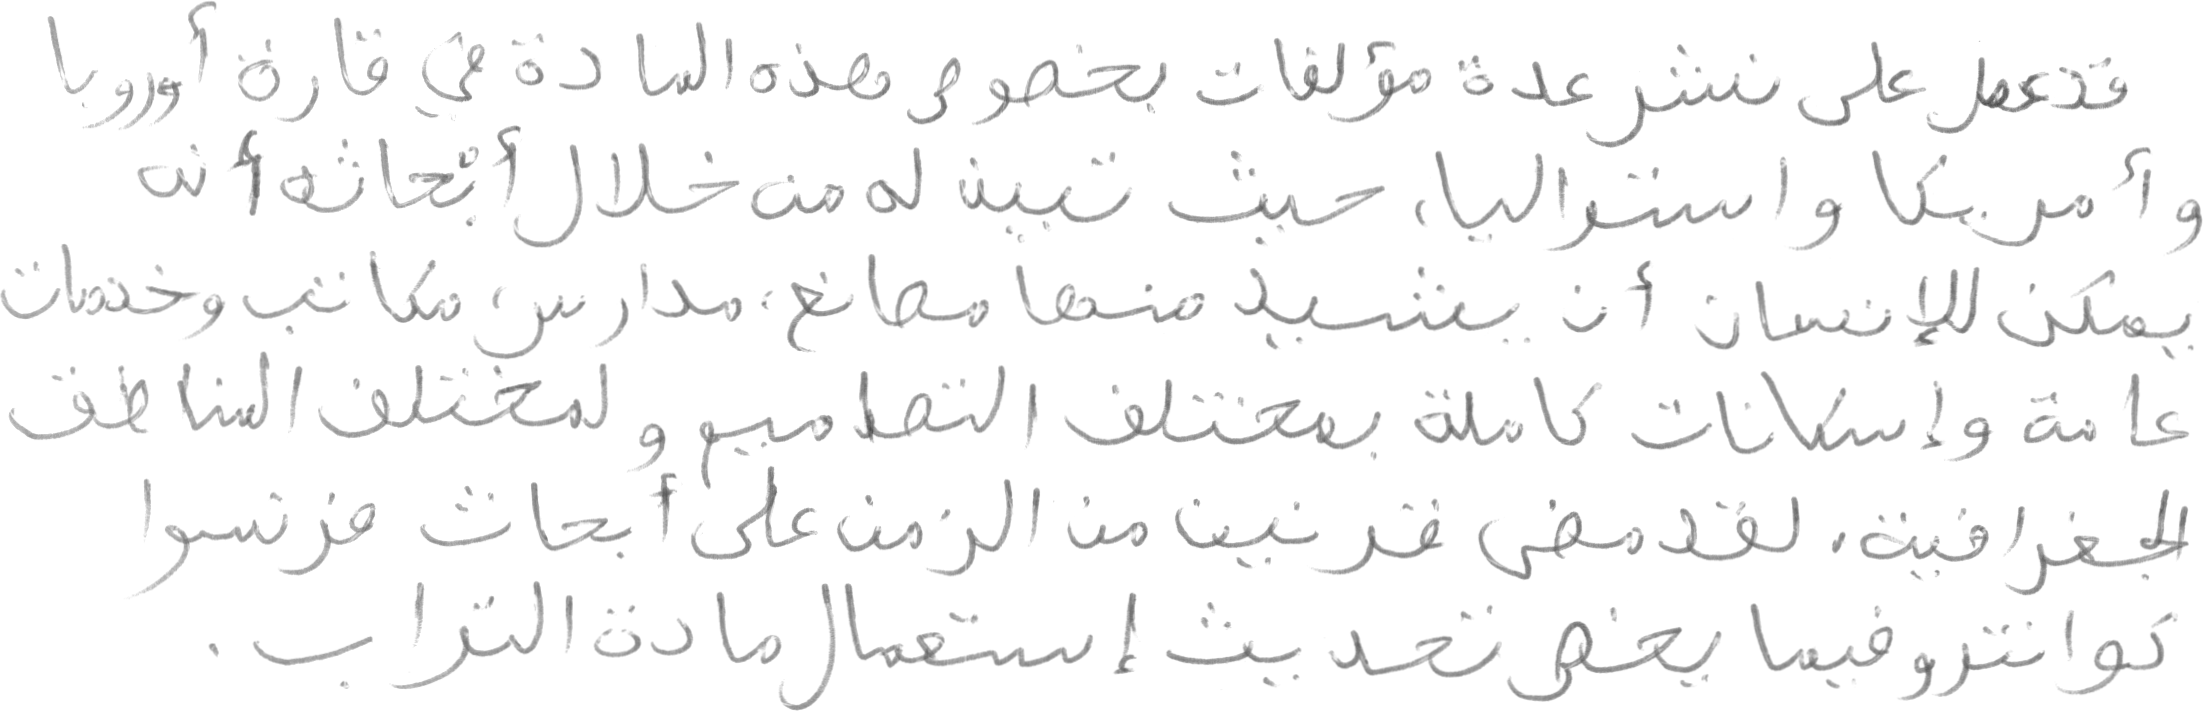 قد عمل على نشر عدة مؤلفات بخصوص هذه المادة في قارة أوروبا
وأمريكا واستراليا، حيث تبين له من خلال أبحاثه أنه
يمكن للإنسان أن يشيد منها مصانع، مدارس، مكاتب وخدمات
عامة وإسكانات كاملة بمختلف التصاميم ولمختلف المناطق
الجغرافية. لقد مضى قرنين من الزمن على أبحاث فرنسوا
كوانترو فيما يخص تحديث إستعمال مادة التراب.